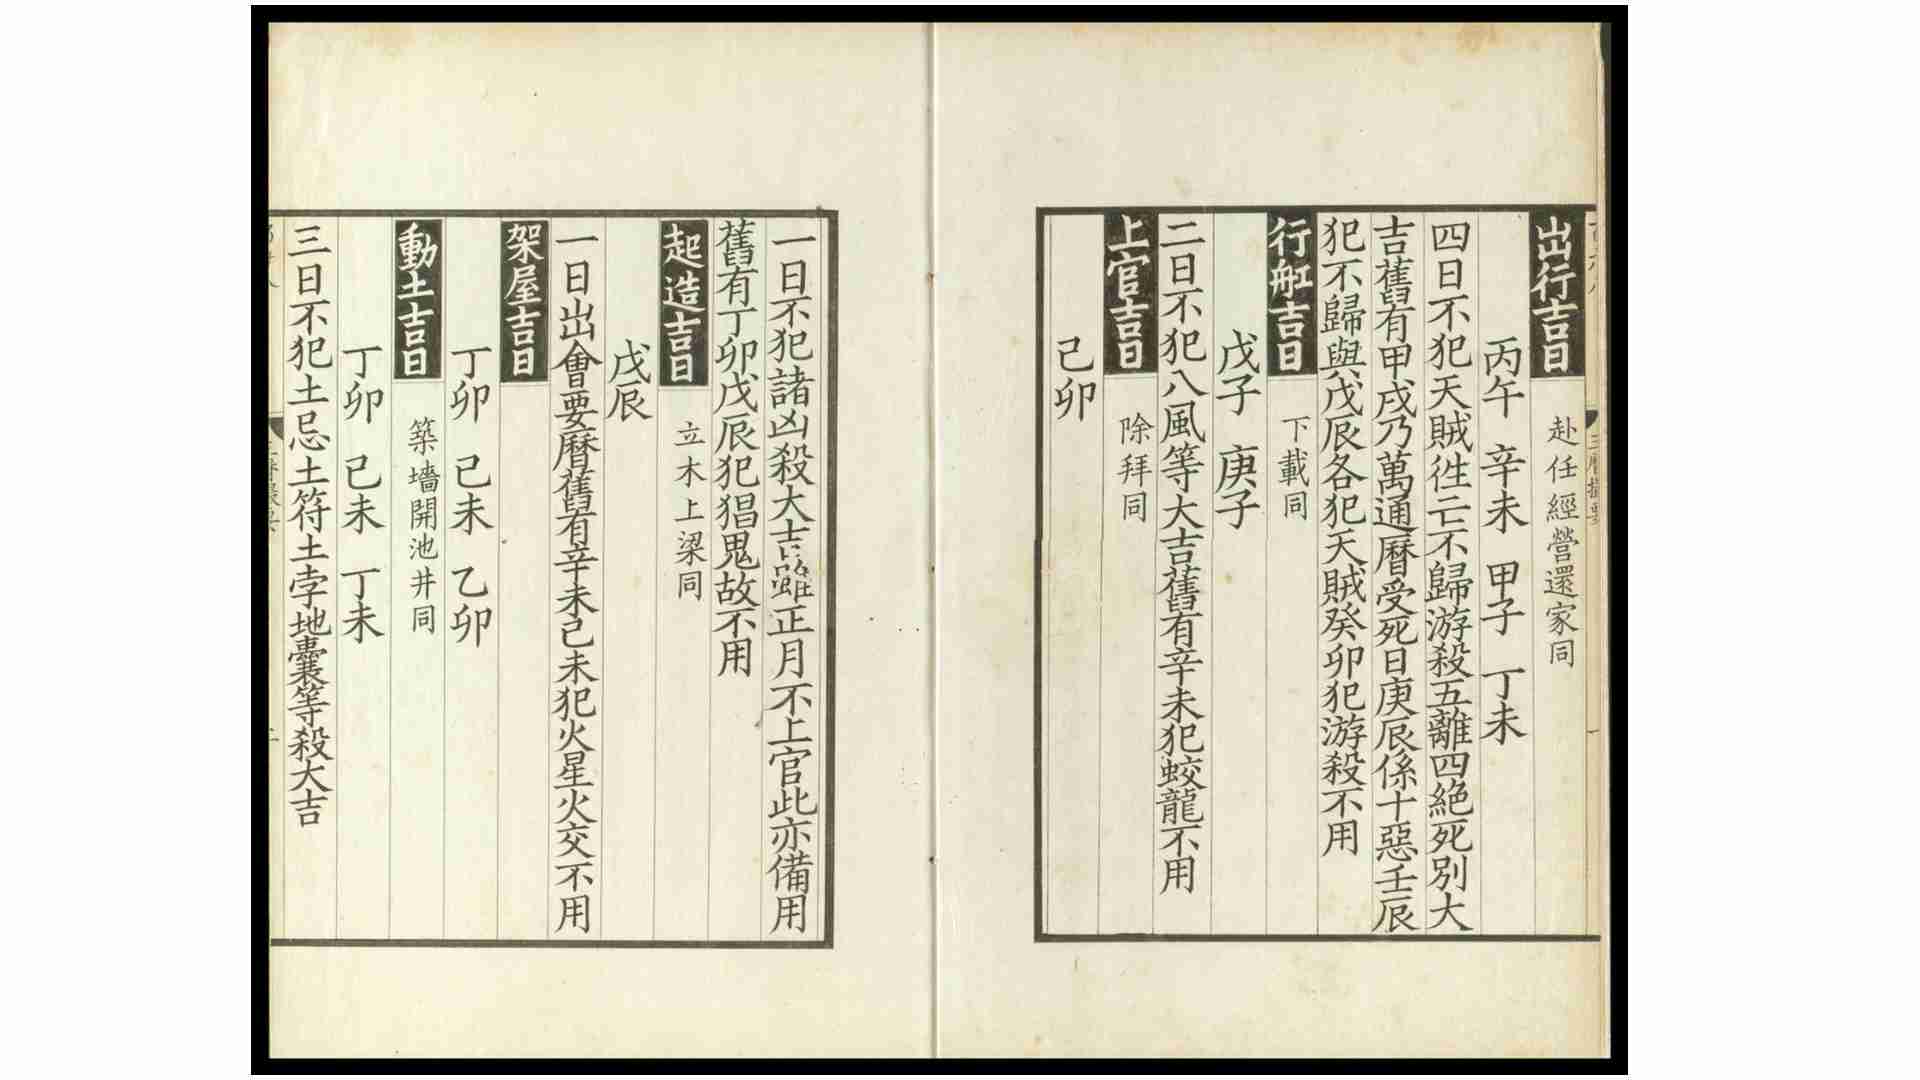 出行吉日 赴任經營還家同
丙午 辛未 甲子 丁未
四日不犯天賊徃亡不歸游殺五離四絶死別大
吉舊有甲戌乃萬通曆受死日庚辰係十惡壬辰
犯不歸與戊辰各犯天賊癸卯犯游殺不用
行舡吉日 下載同
戊子 庚子
二日不犯八風等大吉舊有辛未犯蛟龍不用
上官吉日 除拜同
己卯
一日不犯諸凶殺大吉雖正月不上官此亦備用
舊有丁卯戊辰犯猖鬼故不用
起造吉日 立木上梁同
戊辰
一日出會要曆舊有辛未己未犯火星火交不用
架屋吉日
丁卯 己未 乙卯
動土吉日 築墻開池井同
丁卯 己未 丁未
三日不犯土忌土符土孛地囊等殺大吉